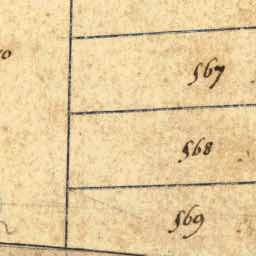 567
568
569